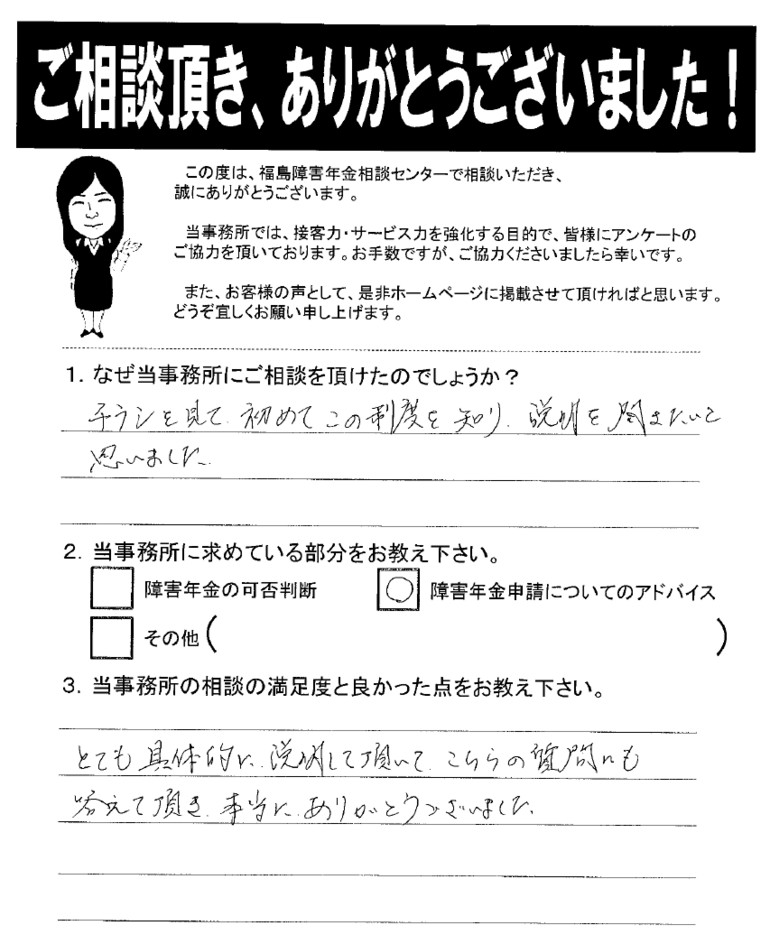 ご相談頂き、ありがとうございました！
この度は、福島障害年金相談センターで相談いただき、
誠にありがとうございます。
当事務所では、接客力・サービス力を強化する目的で、皆様にアンケートの
ご協力を頂いております。お手数ですが、ご協力くださいましたら幸いです。
また、お客様の声として、是非ホームページに掲載させて頂ければと思います。
どうぞ宜しくお願い申し上げます。
1. なぜ当事務所にご相談を頂けたのでしょうか？
チラシを見て、初めてこの制度を知り、説明を聞きたいと
思いました。
2. 当事務所に求めている部分をお教え下さい。
障害年金の可否判断 ○ 障害年金申請についてのアドバイス
その他（ ）
3. 当事務所の相談の満足度と良かった点をお教え下さい。
とても具体的に、説明して頂いて、こちらの質問にも
答えて頂き、本当に、ありがとうございました。